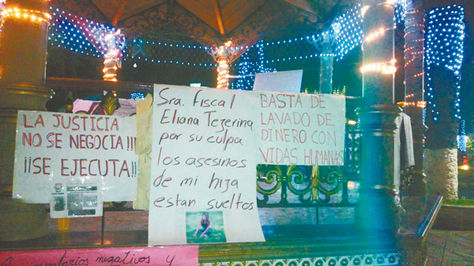 LA JUSTICIA
NO SE NEGOCIA!!!
¡¡SE EJECUTA!!
Sra. Fiscal
Eliana Tezerina
por su culpa
los asesinos
de mi hija
estan sueltos
BASTA DE
LAVADO DE
DINERO CON
VIDAS HUMANAS
negativos y